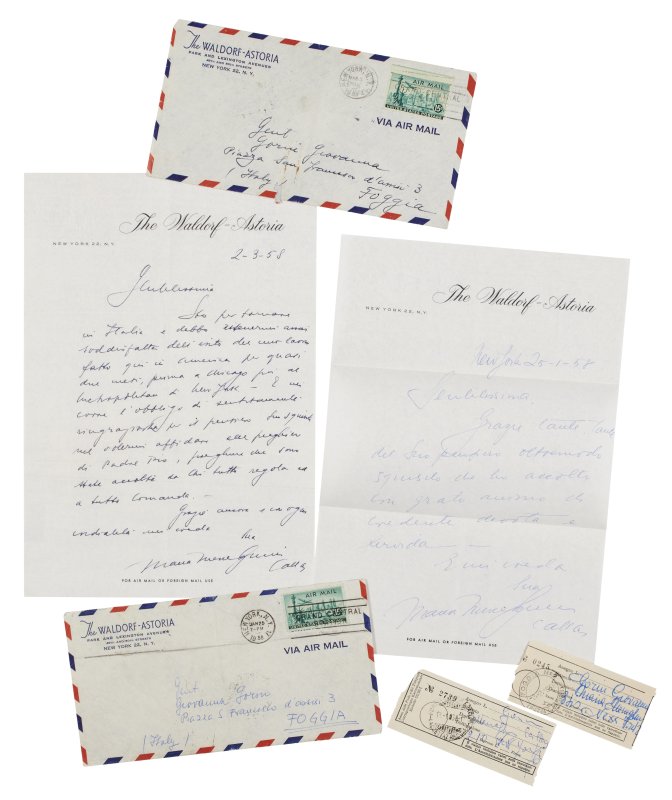 The WALDORF-ASTORIA
PARK AND LEXINGTON AVENUES
49TH AND 50TH STREETS
NEW YORK 22, N.Y.
AIR MAIL
15¢
UNITED STATES POSTAGE
VIA AIR MAIL
Gent
Gorni Giovanna
Piazza San Francesco d'assisi 3
(Italy)
FOGGIA
The Waldorf-Astoria
NEW YORK 22, N.Y.
2-3-58
Gentilissima
Sto per tornare
in Italia e debbo assai
soddisfatta dell'esito del mio lavoro
fatto qui in america per quasi
due mesi, prima a Chicago poi al
Metropolitan di New York – E mi
corre l'obbligo di sentitamente
ringraziarla per il pensiero Suo squisito
nel volermi affidare alle preghiere
di Padre Pio, preghiere che sono
state accolte da chi tutto regola ed
a tutto comanda. –
Grazie ancora e con ogni
cordialità mi creda
Sua
Maria Meneghini
Callas
FOR AIR MAIL OR FOREIGN MAIL USE
The Waldorf-Astoria
NEW YORK 22, N.Y.
New York 25-1-58
Gentilissima
Grazie tante, tante
del Suo pensiero oltremodo
squisito che ho accolto
con grato animo di
credente, devota e
fervida –
E mi creda
Sua
Maria Meneghini
Callas
FOR AIR MAIL OR FOREIGN MAIL USE
The WALDORF-ASTORIA
PARK AND LEXINGTON AVENUES
49TH AND 50TH STREETS
NEW YORK 22, N.Y.
NEW YORK, N.Y.
JAN 25
7-PM
1958
AIR MAIL
GRAND CENTRAL
VIA AIR MAIL
Gent
Giovanna Gorni
Piazza S Francesco d'assisi 3
FOGGIA
(Italy)
№ 2739
0245
Gorni Giovanna